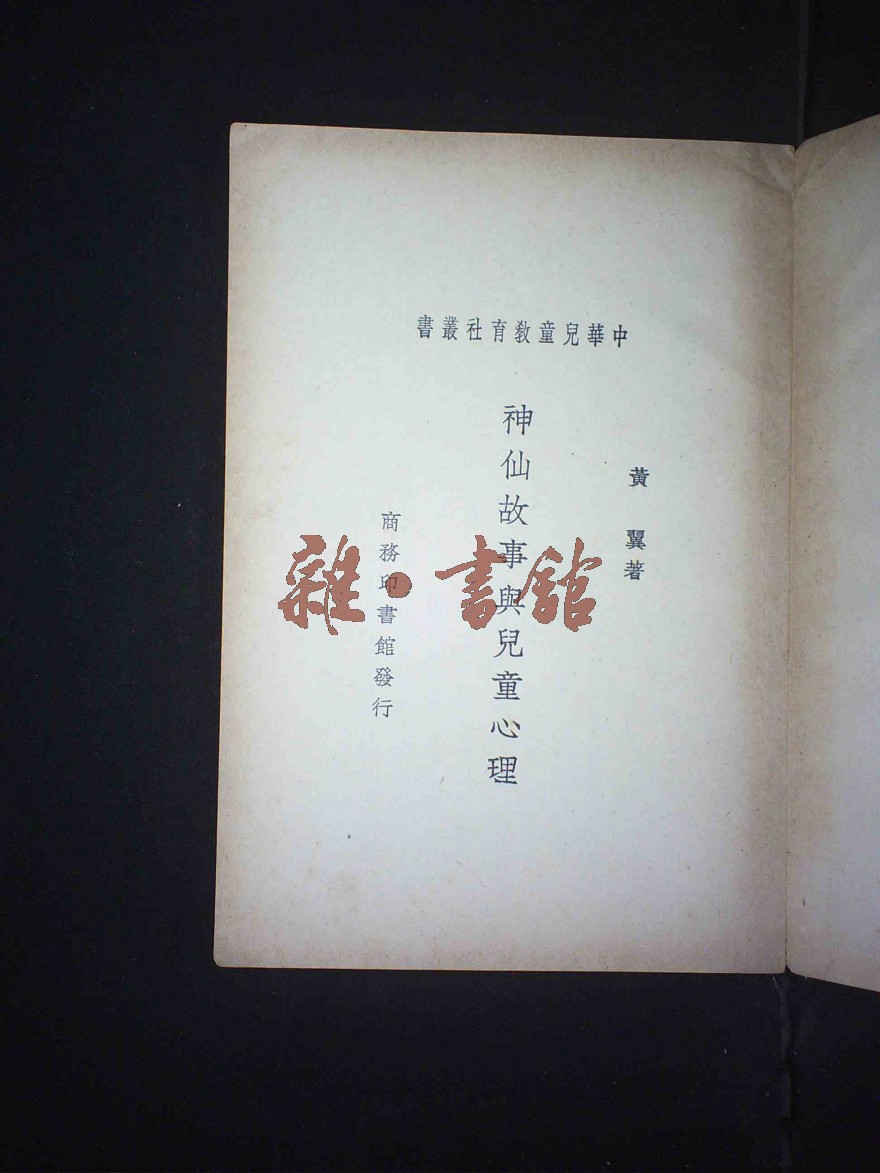 中華兒童教育社叢書
黃翼著
神仙故事與兒童心理
商務印書館發行
雜·書館